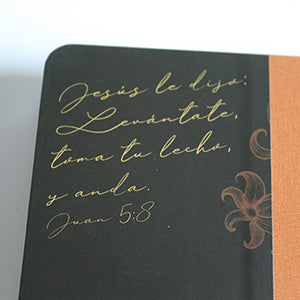 Jesús le dijo:
Levántate,
toma tu lecho,
y anda.
Juan 5:8